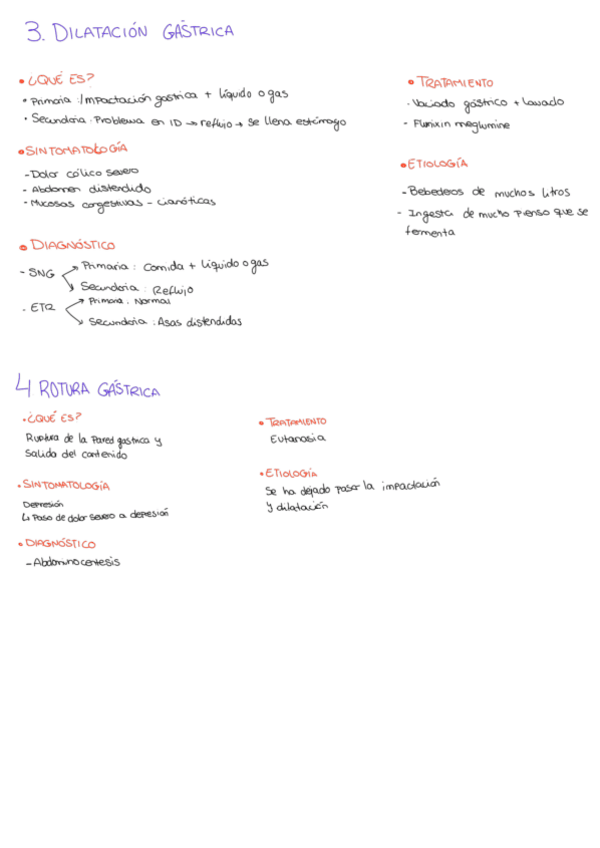 3. DILATACIÓN GÁSTRICA
• ¿QUÉ ES?
• Primaria: Impactación gástrica + líquido o gas
• Secundaria: Problema en ID → reflujo → se llena estómago
• SINTOMATOLOGÍA
- Dolor cólico severo
- Abdomen distendido
- Mucosas congestivas - cianóticas
• DIAGNÓSTICO
- SNG
Primaria: Comida + líquido o gas
Secundaria: Reflujo
- ETR
Primaria: Normal
Secundaria: Asas distendidas
• TRATAMIENTO
- Vaciado gástrico + lavado
- Flunixin meglumine
• ETIOLOGÍA
- Bebederos de muchos litros
- Ingesta de mucho pienso que se
fermenta
4 ROTURA GÁSTRICA
• ¿QUÉ ES?
Ruptura de la pared gástrica y
salida del contenido
• SINTOMATOLOGÍA
Depresión
↳ Paso de dolor severo a depresión
• DIAGNÓSTICO
- Abdominocentesis
• TRATAMIENTO
Eutanasia
• ETIOLOGÍA
Se ha dejado pasar la impactación
y dilatación